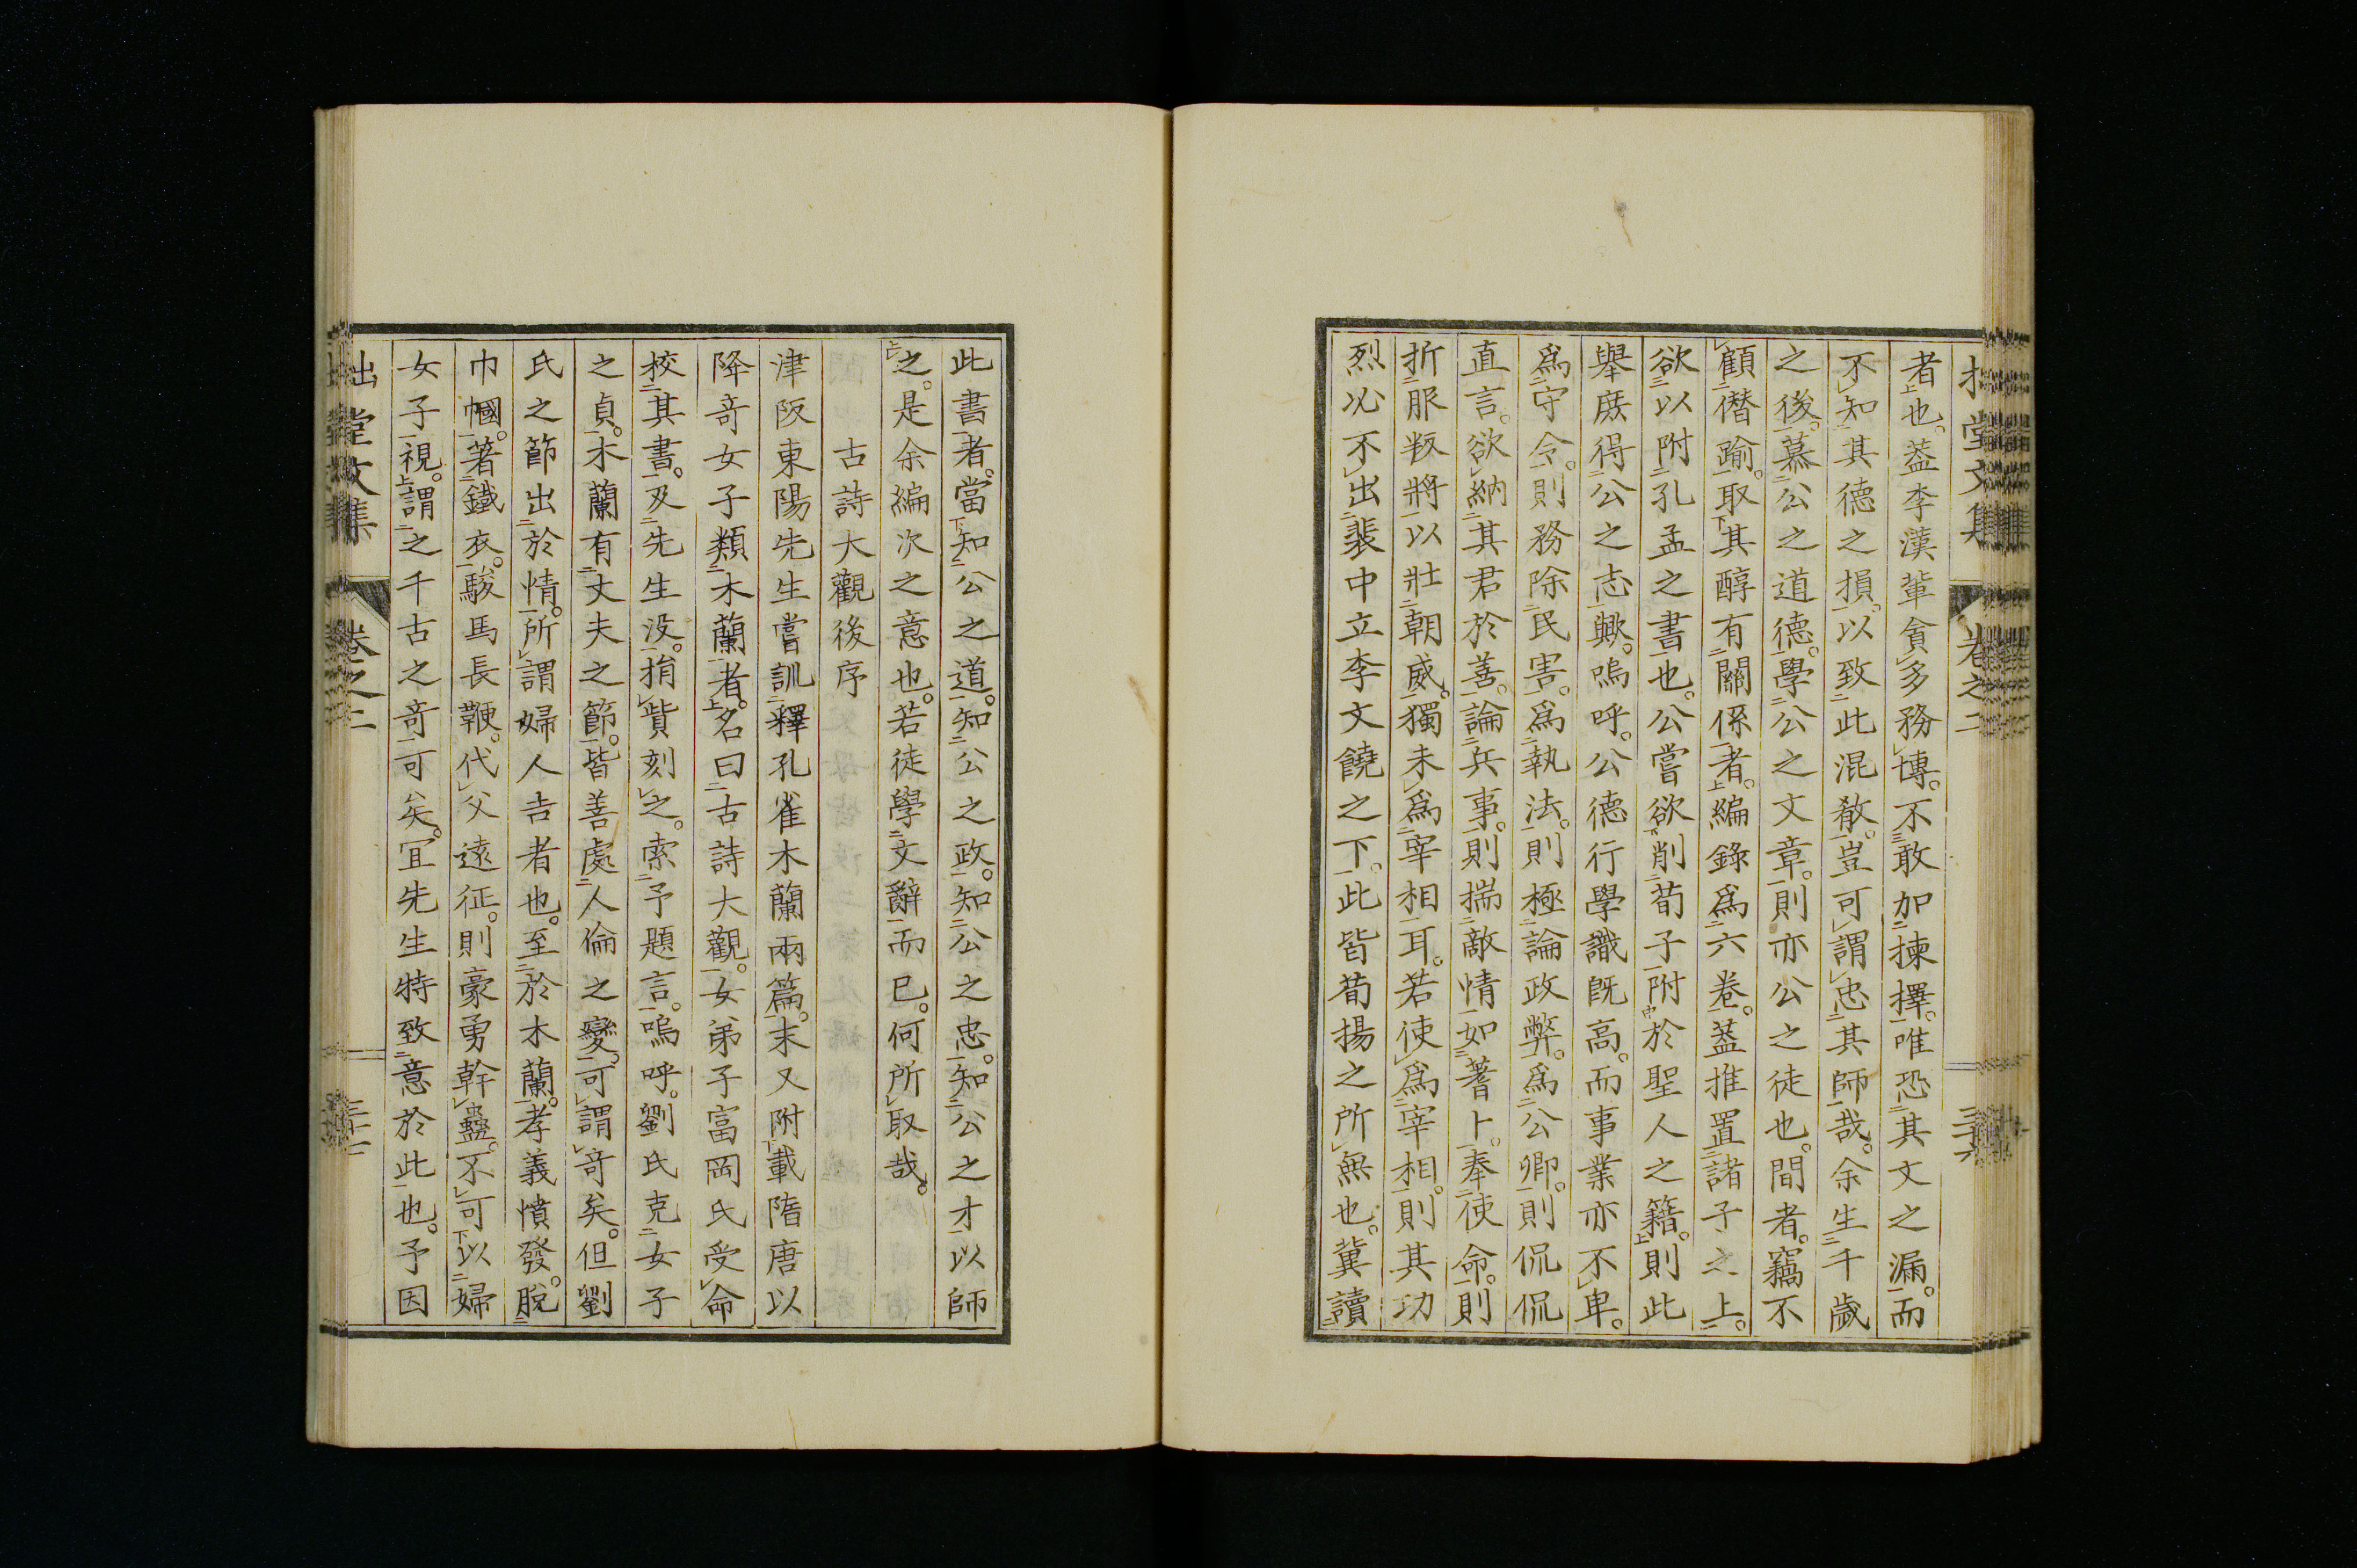 者也。葢李漢輩貪多務博。不敢加揀擇。唯恐其文之漏。而
不知其德之損。以致此混殽。豈可謂忠其師哉。余生千歲
之後。慕公之道德。學公之文章。則亦公之徒也。間者。竊不
顧僭踰。取其醇有關係者。編錄爲六卷。葢推置諸子之上。
欲以附孔孟之書也。公嘗欲削荀子附於聖人之籍。則此
舉庶得公之志歟。嗚呼。公德行學識既高。而事業亦不卑。
爲守令。則務除民害。爲執法。則極論政弊。爲公卿。則侃侃
直言。欲納其君於善。論兵事。則揣敵情如蓍卜。奉使命。則
折服叛將以壯朝威。獨未爲宰相耳。若使爲宰相。則其功
烈必不出裴中立李文饒之下。此皆荀揚之所無也。冀讀
此書者。當知公之道。知公之政。知公之忠。知公之才以師
之。是余編次之意也。若徒學文辭而已。何所取哉。
古詩大觀後序
津阪東陽先生嘗訓釋孔雀木蘭兩篇。末又附載隋唐以
降奇女子類木蘭者。名曰古詩大觀。女弟子富岡氏受命
校其書。及先生没。捐貲刻之。索予題言。嗚呼。劉氏克女子
之貞。木蘭有丈夫之節。皆善處人倫之變。可謂奇矣。但劉
氏之節出於情。所謂婦人吉者也。至於木蘭。孝義憤發。脫
巾幗。著鐵衣。駿馬長鞭。代父遠征。則豪勇幹蠱。不可以婦
女子視。謂之千古之奇可矣。宜先生特致意於此也。予因
拙堂文集 卷之二